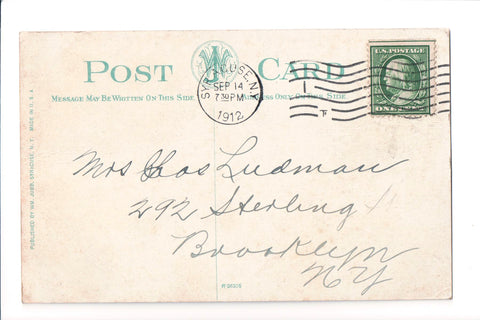 POST CARD
MESSAGE MAY BE WRITTEN ON THIS SIDE ONLY ON THIS SIDE.
SYRACUSE, N.Y.
SEP 14
7 30 PM
1912
U.S. POSTAGE
ONE
Mrs Chas Ludman
292 Sterling
Brooklyn
NY
PUBLISHED BY WM. JUBB, SYRACUSE, N. Y. MADE IN U.S.A.